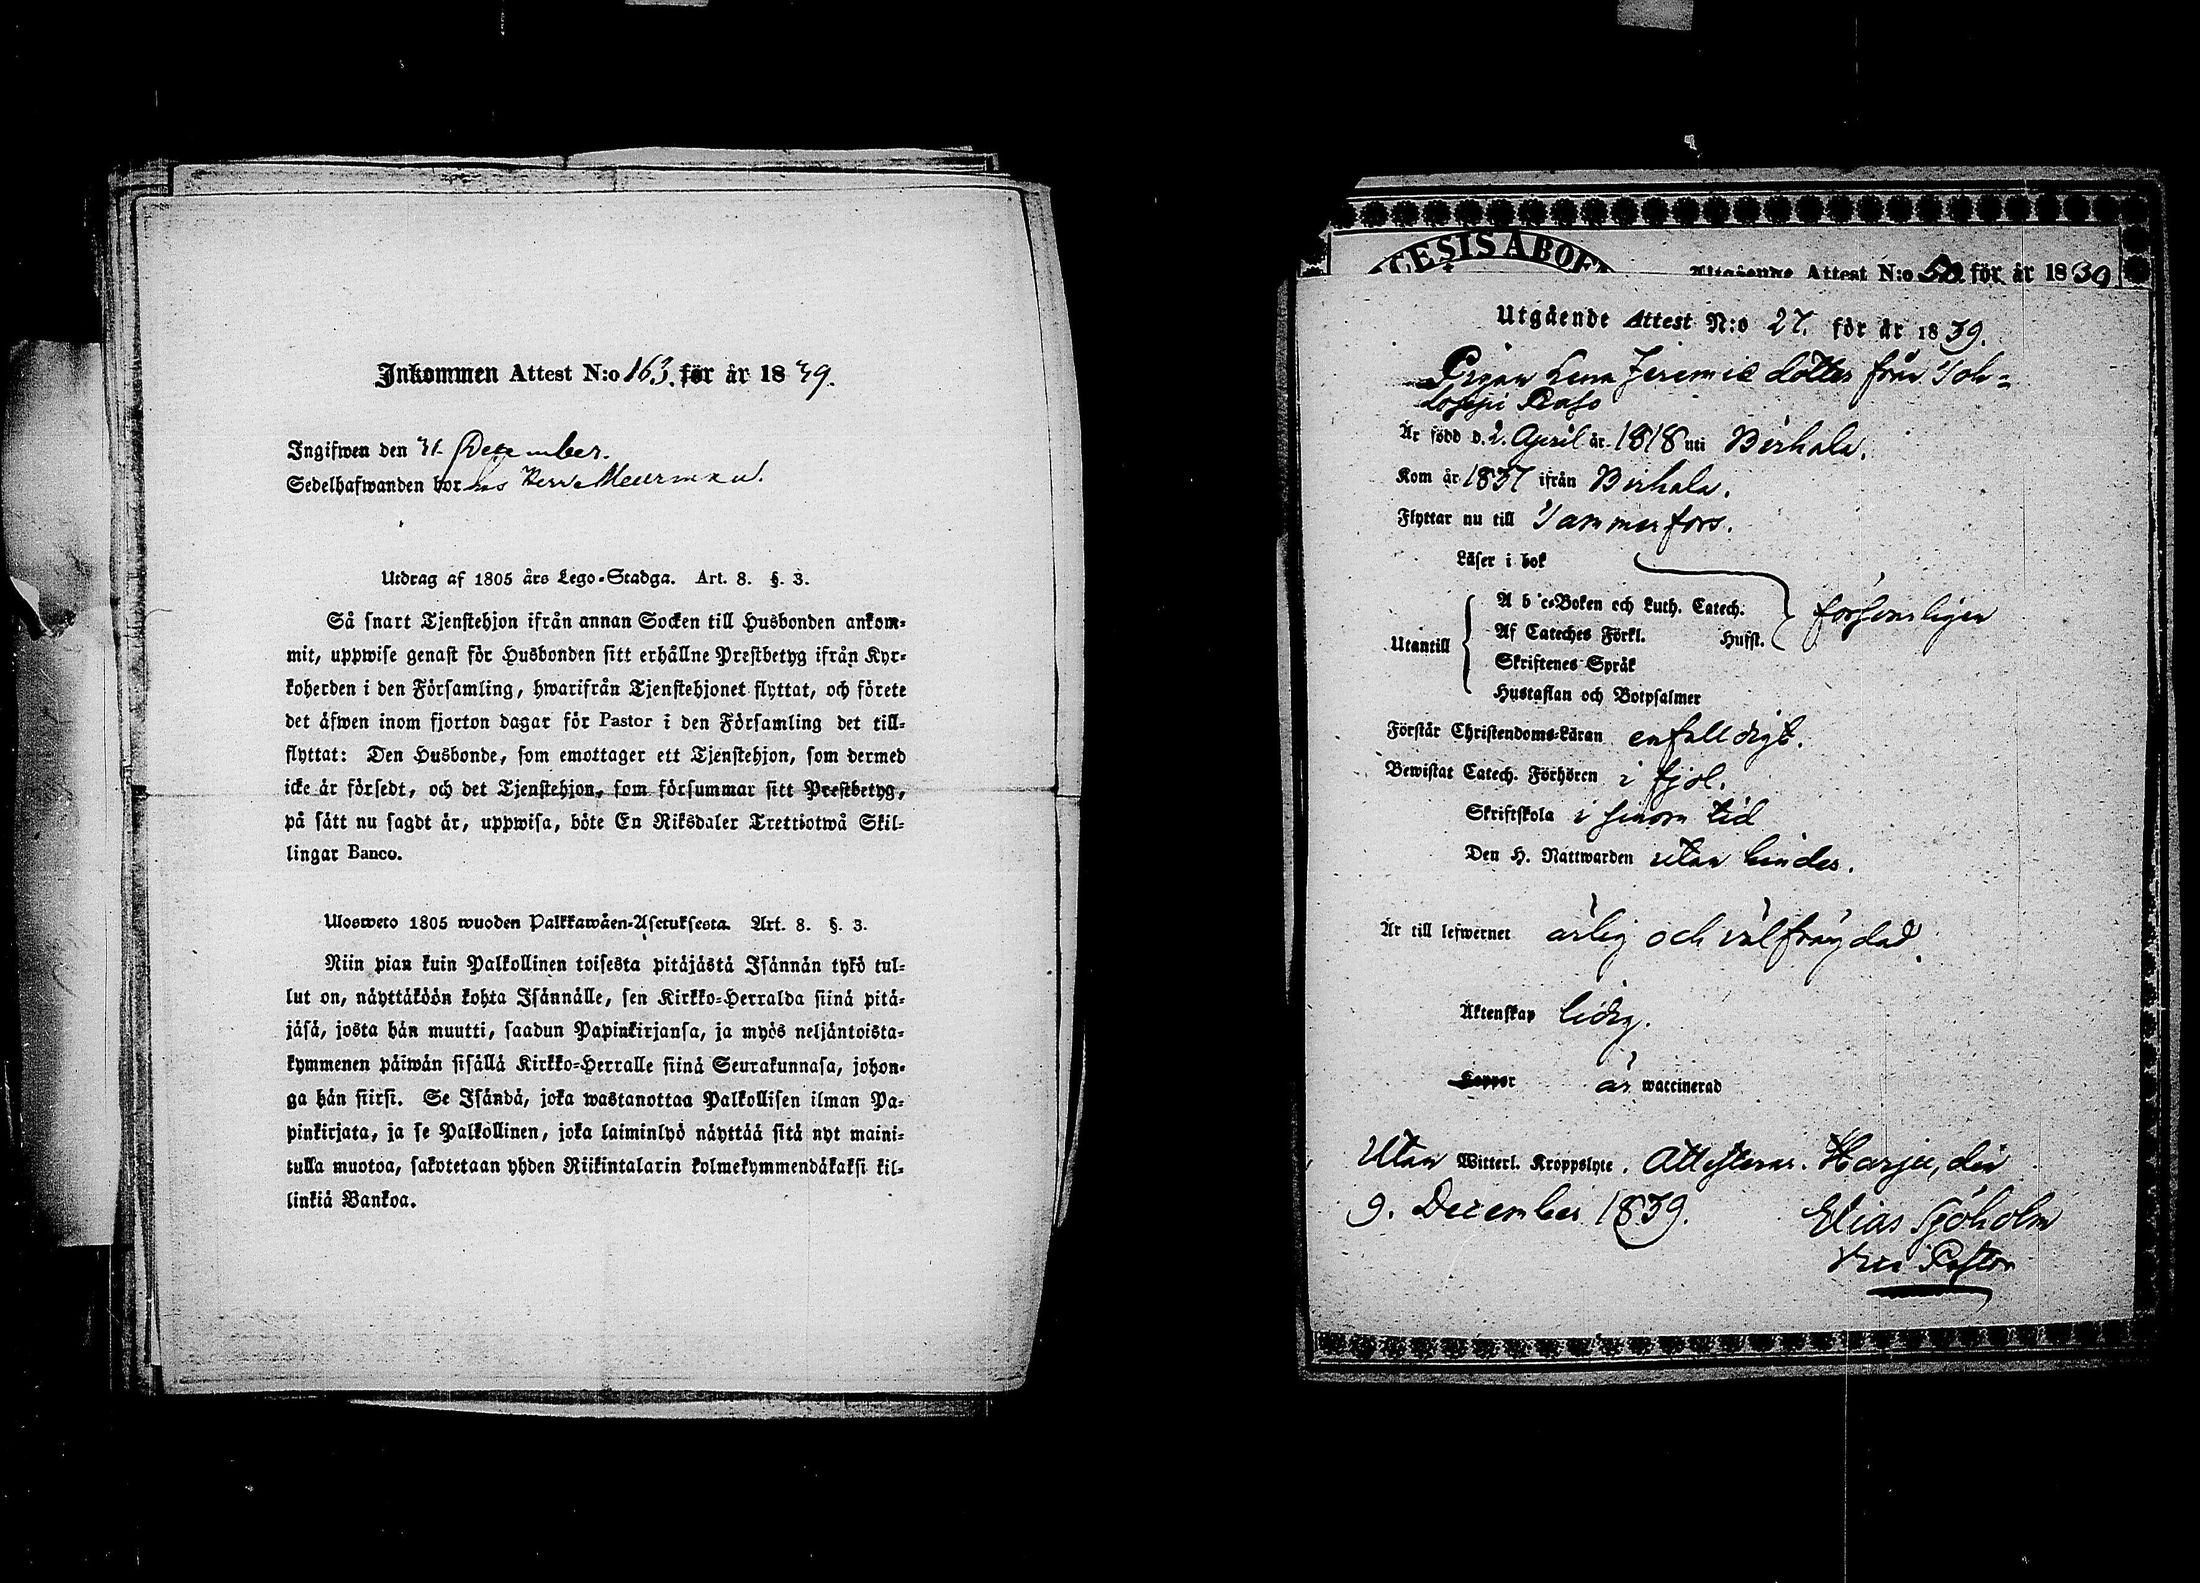 Inkommen Attest N:o 163. för år 1839.
Ingifwen den 31 December.
Sedelhafwanden bor hos Herr Meurman.
Utdrag af 1805 års Lego-Stadga. Art. 8. §. 3.
Så snart Tjenstehjon ifrån annan Socken till Husbonden ankom-
mit, uppwise genast för Husbonden sitt erhållne Prestbetyg ifrån Kyr-
koherden i den Församling, hwarifrån Tjenstehjonet flyttat, och förete
det äfwen inom fjorton dagar för Pastor i den Församling det till-
flyttat: Den Husbonde, som emottager ett Tjenstehjon, som dermed
icke är försedt, och det Tjenstehjon, som försummar sitt Prestbetyg,
på sätt nu sagdt är, uppwisa, böte En Riksdaler Trettiotwå Skil-
lingar Banco.
Ulosweto 1805 wuoden Palkkawäen-Asetuksesta. Art. 8. §. 3.
Niin pian kuin Palkollinen toisesta pitäjästä Isännän tykö tul-
lut on, näyttäköön kohta Isännälle, sen Kirkko-Herralda siinä pitä-
jäsä, josta hän muutti, saadun Papinkirjansa, ja myös neljäntoista-
kymmenen päiwän sisällä Kirkko-Herralle siinä Seurakunnasa, johon-
ga hän siirsi. Se Isändä, joka wastanottaa Palkollisen ilman Pa-
pinkirjata, ja se Palkollinen, joka laiminlyö näyttää sitä nyt maini-
tulla muotoa, sakotetaan yhden Riikintalarin kolmekymmendäkaksi kil-
linkiä Bankoa.
CESIS ABOE
Utgående Attest N:o 50 för år 1839
Utgående Attest N:o 27. för år 1839.
Pigan Lena Jeremie dotter från Toh-
loppi
Är född d. 2. April år 1818 uti Birkala.
Kom år 1837 ifrån Birkala.
Flyttar nu till Tammerfors.
Läser i bok
Utantill
A b c-Boken och Luth. Catech.
Af Cateches Förkl. Hufst.
försvarligen
Skriftenes Språk
Hustaflan och Botpsalmer
Förstår Christendoms-Läran enfalldigt.
Bewistat Catech. Förhören i fjol.
Skriftskola i sinom tid
Den H. Nattwarden utan hinder.
Är till lefwernet ärlig och välfräjdad.
Äktenskap ledig.
Koppor är waccinerad
Utan Witterl. Kroppslyte. Attesterar. Harju, den
9. December 1839.
Elias Sjöholm
Vice Pastor